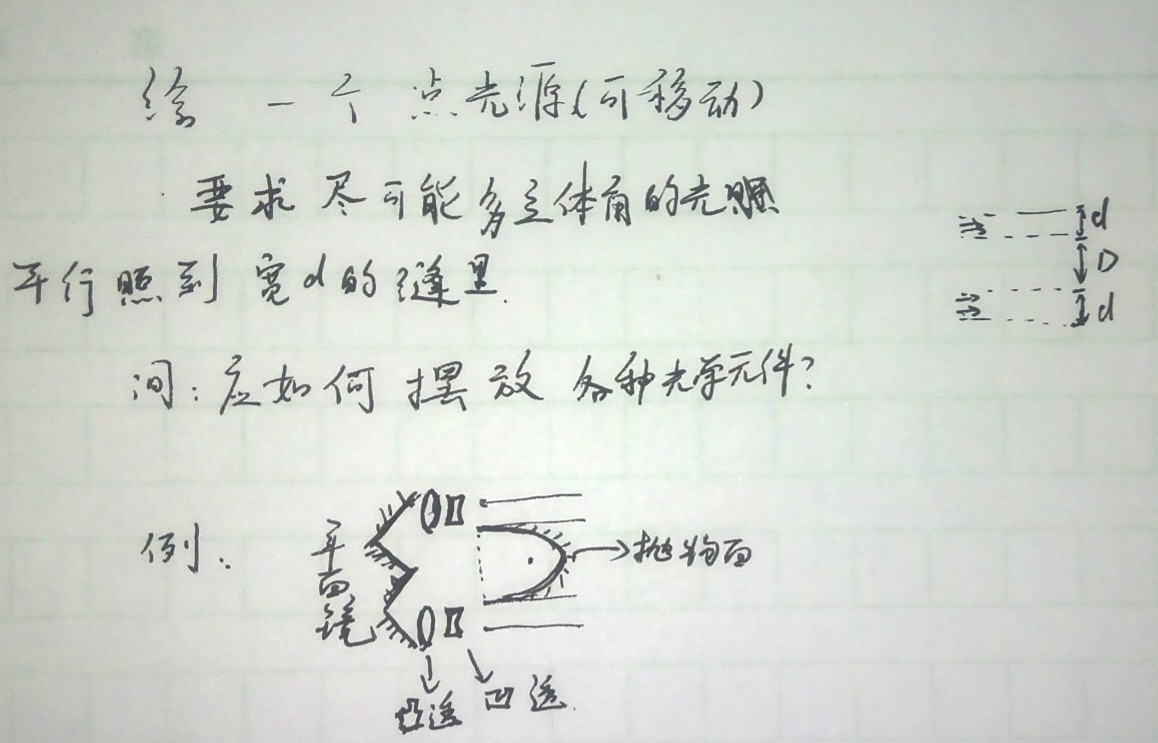 给一个点光源(可移动)
要求尽可能多立体角的光照
平行照到宽d的缝里.
d
D
d
问:应如何摆放各种光学元件?
例:
平面镜
抛物面
凸透
凹透